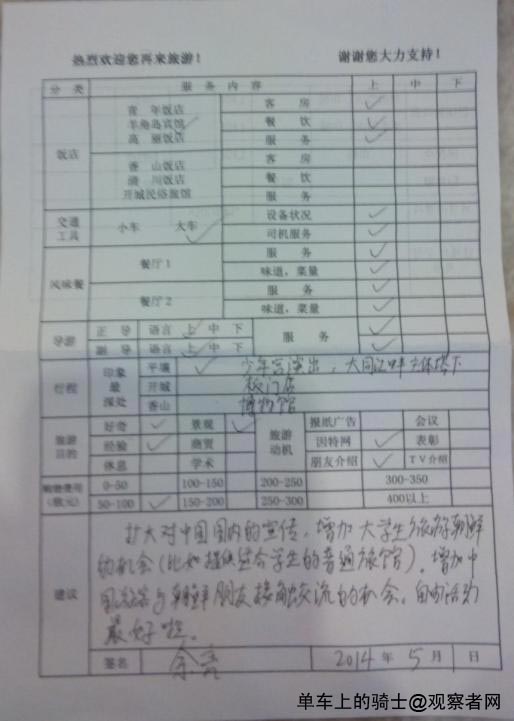 热烈欢迎您再来旅游！ 谢谢您大力支持！
分 类 服 务 内 容 上 中 下
饭店 青 年饭店 客 房 ✓
羊角岛宾馆 ✓ 餐 饮 ✓
高 丽饭店 服 务 ✓
香 山饭店 客 房
清 川饭店 餐 饮
开城民俗旅馆 服 务
交通工具 小车 大车 ✓ 设备状况 ✓
司机服务 ✓
风味餐 餐厅 1 服 务 ✓
味道，菜量 ✓
餐厅 2 服 务 ✓
味道，菜量 ✓
导游 正 导 语言 上 中 下 服 务 ✓
副 导 语言 上 中 下 ✓
行程 印象最深处 平壤 ✓ 少年宫演出，大同江畔主体塔下
开城 板门店
香山 博物馆
旅游目的 好奇 ✓ 景观 ✓ 旅游动机 报纸广告 会议
经验 ✓ 商贸 因特网 ✓ 表彰
休息 学术 朋友介绍 ✓ TV介绍
购物费用（欧元） 0-50 100-150 200-250 300-350
50-100 ✓ 150-200 250-300 400以上
建议 扩大对中国国内的宣传，增加大学生旅游朝鲜
的机会（比如提供适合学生的普通旅馆）。增加中
国游客与朝鲜朋友接触交流的机会，自由活动
最好啦。
签名 2014 年 5 月 日
单车上的骑士@观察者网